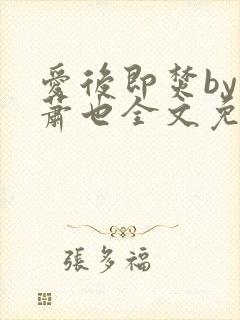 愛後即焚by
蕭也全文免
張多福